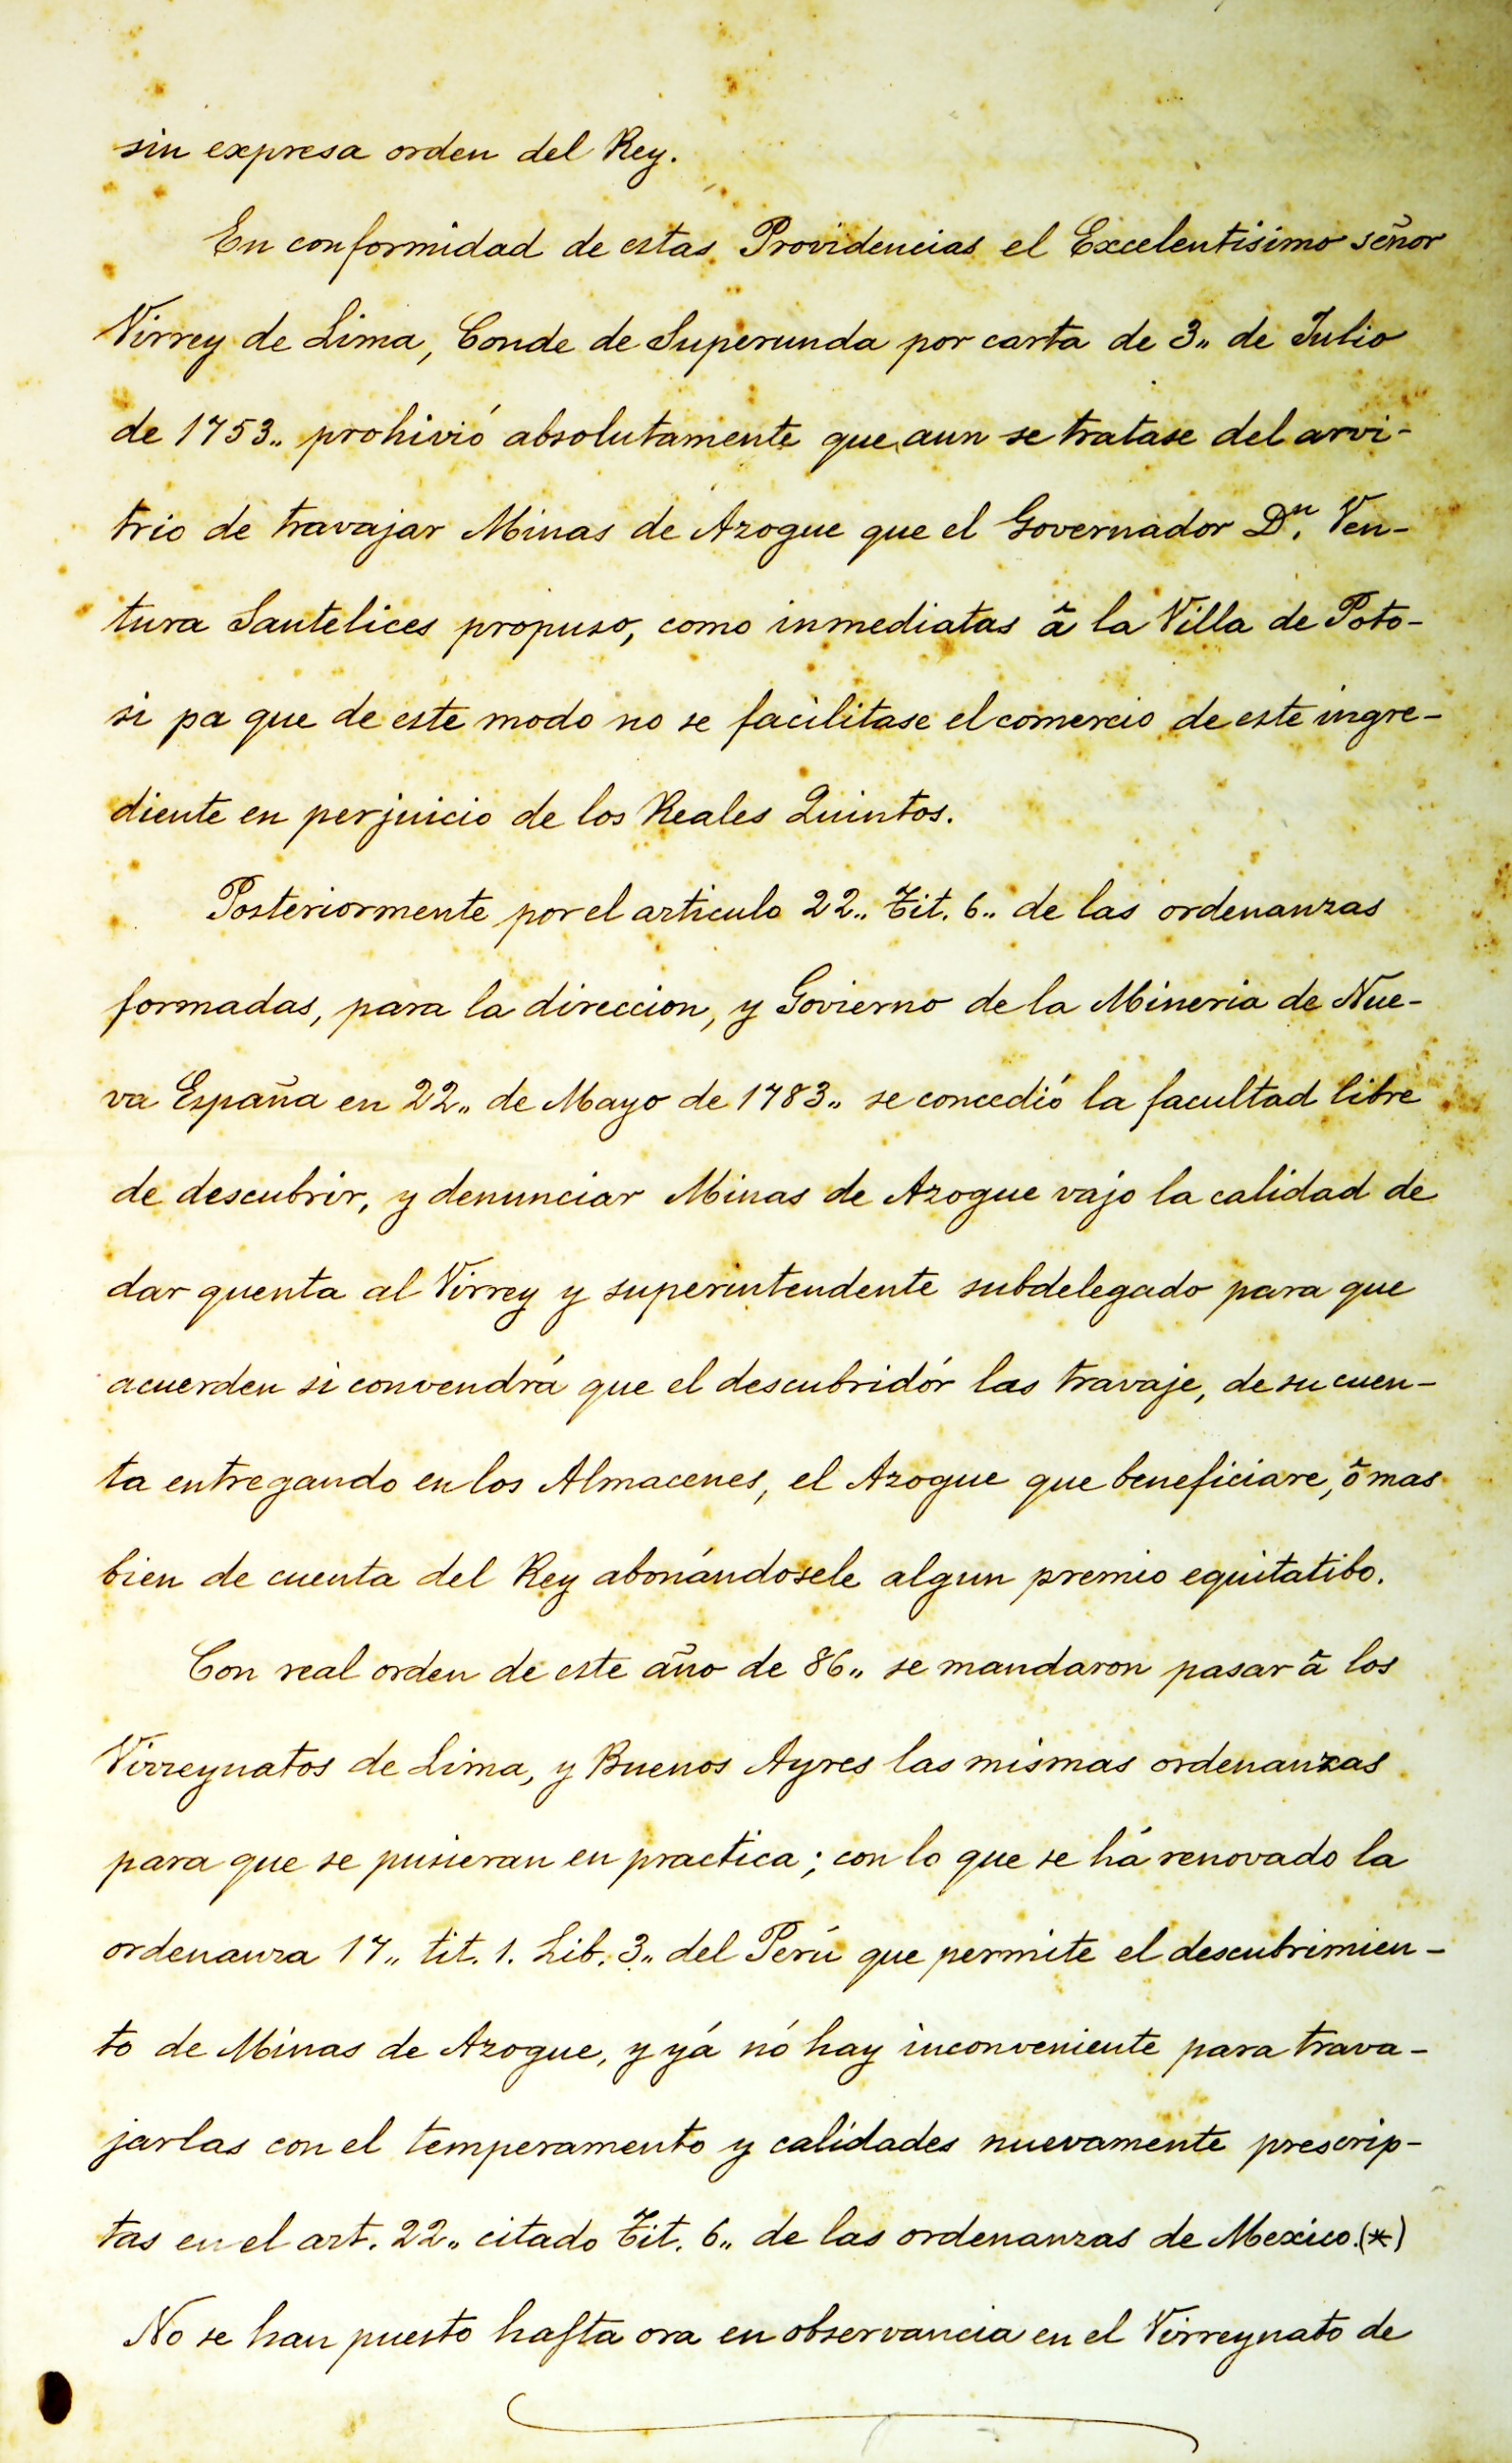 sin expresa orden del Rey.
En conformidad de estas Providencias el Excelentisimo señor
Virrey de Lima, Conde de Superunda por carta de 3,, de Julio
de 1753.. prohivió absolutamente que aun se tratase del arvi-
trio de travajar Minas de Azogue que el Governador Dn. Ven-
tura Santelices propuso, como inmediatas â la Villa de Poto-
si pa que de este modo no se facilitase el comercio de este ingre-
diente en perjuicio de los Reales Quintos.
Posteriormente por el articulo 22.. Tit. 6.. de las ordenanzas
formadas, para la direccion, y Govierno de la Mineria de Nue-
va España en 22,, de Mayo de 1783,, se concedió la facultad libre
de descubrir, y denunciar Minas de Azogue vajo la calidad de
dar quenta al Virrey y superintendente subdelegado para que
acuerden si convendrá que el descubridór las travaje, de su cuen-
ta entregando en los Almacenes, el Azogue que beneficiare, ô mas
bien de cuenta del Rey abonándosele algun premio equitatibo.
Con real orden de este año de 86,, se mandaron pasar â los
Virreynatos de Lima, y Buenos Ayres las mismas ordenanzas
para que se pusieran en practica; con lo que se há renovado la
ordenanza 17,, tit. 1. Lib. 3,, del Perú que permite el descubrimien-
to de Minas de Azogue, y yá nó hay inconveniente para trava-
jarlas con el temperamento y calidades nuevamente prescrip-
tas en el art. 22,, citado Tit. 6,, de las ordenanzas de Mexico.(*)
No se han puesto hasta ora en observancia en el Virreynato de